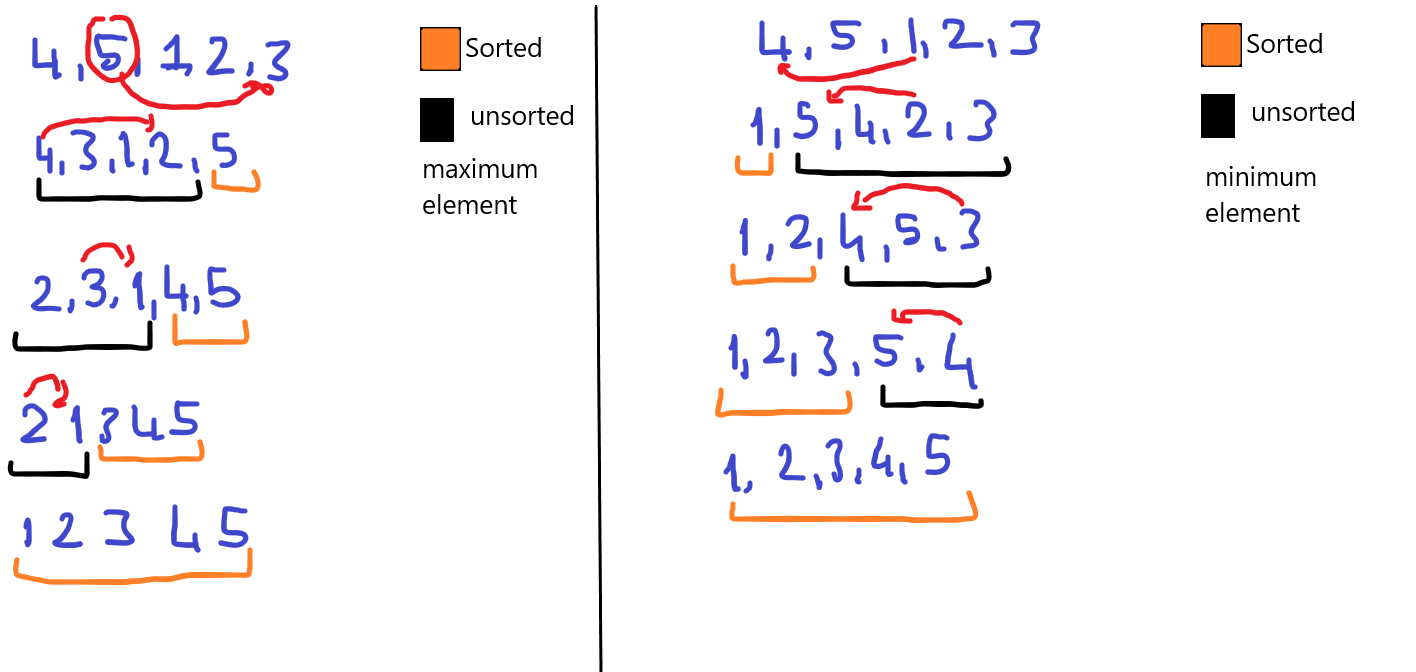 4, 5, 1, 2, 3
4, 3, 1, 2, 5
2, 3, 1, 4, 5
2 1 3 4 5
1 2 3 4 5
Sorted
unsorted
maximum
element
4, 5, 1, 2, 3
1, 5, 4, 2, 3
1, 2, 4, 5, 3
1, 2, 3, 5, 4
1, 2, 3, 4, 5
Sorted
unsorted
minimum
element